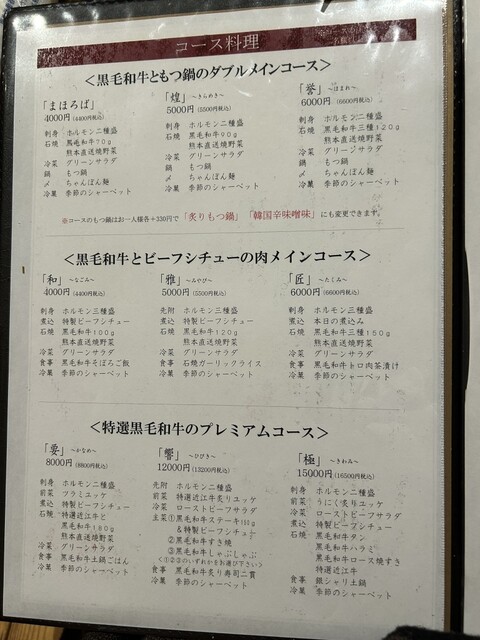 コース料理
<黒毛和牛ともつ鍋のダブルメインコース>
「まほろば」
4000円(4400円税込)
刺身 ホルモン二種盛
石焼 黒毛和牛70g
熊本直送焼野菜
冷菜 グリーンサラダ
鍋 もつ鍋
〆 ちゃんぽん麺
冷菓 季節のシャーベット
「煌」~きらめき~
5000円(5500円税込)
刺身 ホルモン二種盛
石焼 黒毛和牛90g
熊本直送焼野菜
冷菜 グリーンサラダ
鍋 もつ鍋
〆 ちゃんぽん麺
冷菓 季節のシャーベット
「誉」~ほまれ~
6000円(6600円税込)
刺身 ホルモン二種盛
石焼 黒毛和牛三種120g
熊本直送焼野菜
冷菜 グリーンサラダ
鍋 もつ鍋
〆 ちゃんぽん麺
冷菓 季節のシャーベット
※コースのもつ鍋はお一人様各+330円で「炙りもつ鍋」「韓国辛味噌味」にも変更できます。
<黒毛和牛とビーフシチューの肉メインコース>
「和」~なごみ~
4000円(4400円税込)
刺身 ホルモン三種盛
煮込 特製ビーフシチュー
石焼 黒毛和牛100g
熊本直送焼野菜
冷菜 グリーンサラダ
食事 黒毛和牛そぼろご飯
冷菓 季節のシャーベット
「雅」~みやび~
5000円(5500円税込)
先附 ホルモン二種盛
煮込 特製ビーフシチュー
石焼 黒毛和牛120g
熊本直送焼野菜
冷菜 グリーンサラダ
食事 石焼ガーリックライス
冷菓 季節のシャーベット
「匠」~たくみ~
6000円(6600円税込)
刺身 ホルモン三種盛
煮込 本日の煮込み
石焼 黒毛和牛三種150g
熊本直送焼野菜
冷菜 グリーンサラダ
食事 黒毛和牛トロ肉茶漬け
冷菓 季節のシャーベット
<特選黒毛和牛のプレミアムコース>
「要」~かなめ~
8000円(8800円税込)
刺身 ホルモン二種盛
前菜 ツラミユッケ
煮込 特製ビーフシチュー
石焼 特選近江牛と
黒毛和牛180g
熊本直送焼野菜
冷菜 グリーンサラダ
食事 黒毛和牛土鍋ごはん
冷菓 季節のシャーベット
「響」~ひびき~
12000円(13200円税込)
先附 ホルモン二種盛
前菜 特選近江牛炙りユッケ
冷菜 ローストビーフサラダ
主菜①黒毛和牛ステーキ
&特製ビーフシチュー
②黒毛和牛すき焼
③黒毛和牛しゃぶしゃぶ
<①②③のいずれかをお選び下さい>
食事 黒毛和牛炙り寿司二貫
冷菓 季節のシャーベット
「極」~きわみ~
15000円(16500円税込)
刺身 ホルモン二種盛
前菜 うにく炙りユッケ
冷菜 ローストビーフサラダ
煮込 特製ビーフシチュー
石焼 黒毛和牛タン
黒毛和牛ハラミ
黒毛和牛ロース焼すき
特選近江牛
食事 銀シャリ土鍋
冷菓 季節のシャーベット